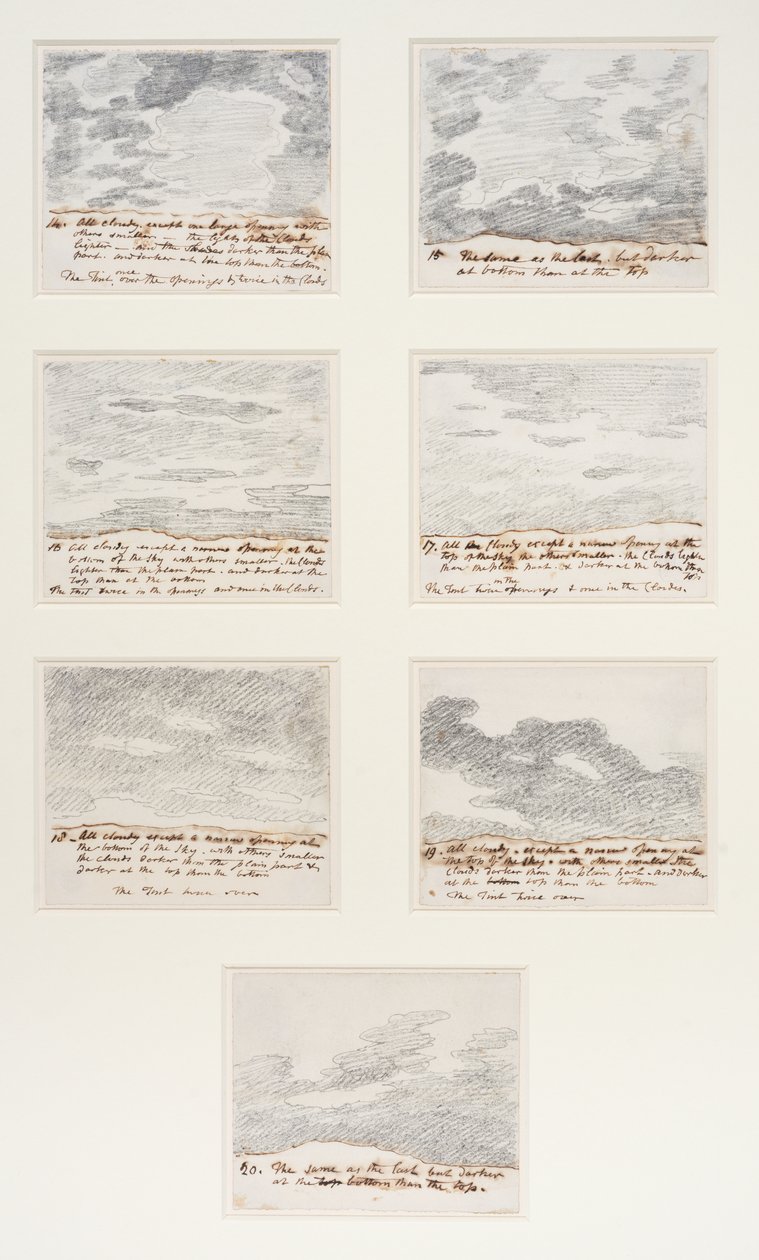 14. All cloudy. except one large opening with
others smaller. — the lights of the Clouds
lighter — and the shades darker than the plain
part. and darker at the top than the bottom.
The Tint once over the openings & twice in the Clouds
15 The same as the last. but darker
at bottom than at the top
16 All cloudy except a narrow opening at the
bottom of the Sky with others smaller. the Clouds
lighter than the plain part. and darker at the
top than at the bottom
The Tint twice in the openings and once in the Clouds.
17. All the Cloudy except a narrow opening at the
top of the Sky the others smaller. the Clouds lighter
than the plain part. & darker at the bottom than
top
The Tint twice in the openings & once in the Clouds.
18 — All cloudy except a narrow opening at
the bottom of the Sky. with others smaller
the clouds darker than the plain part &
darker at the top than the bottom
The Tint twice over
19. All cloudy. except a narrow opening at
the top of the Sky. with others smaller the
Clouds darker than the plain part. and darker
at the bottom top than the bottom
The Tint twice over
20. The same as the last but darker
at the top bottom than the top.